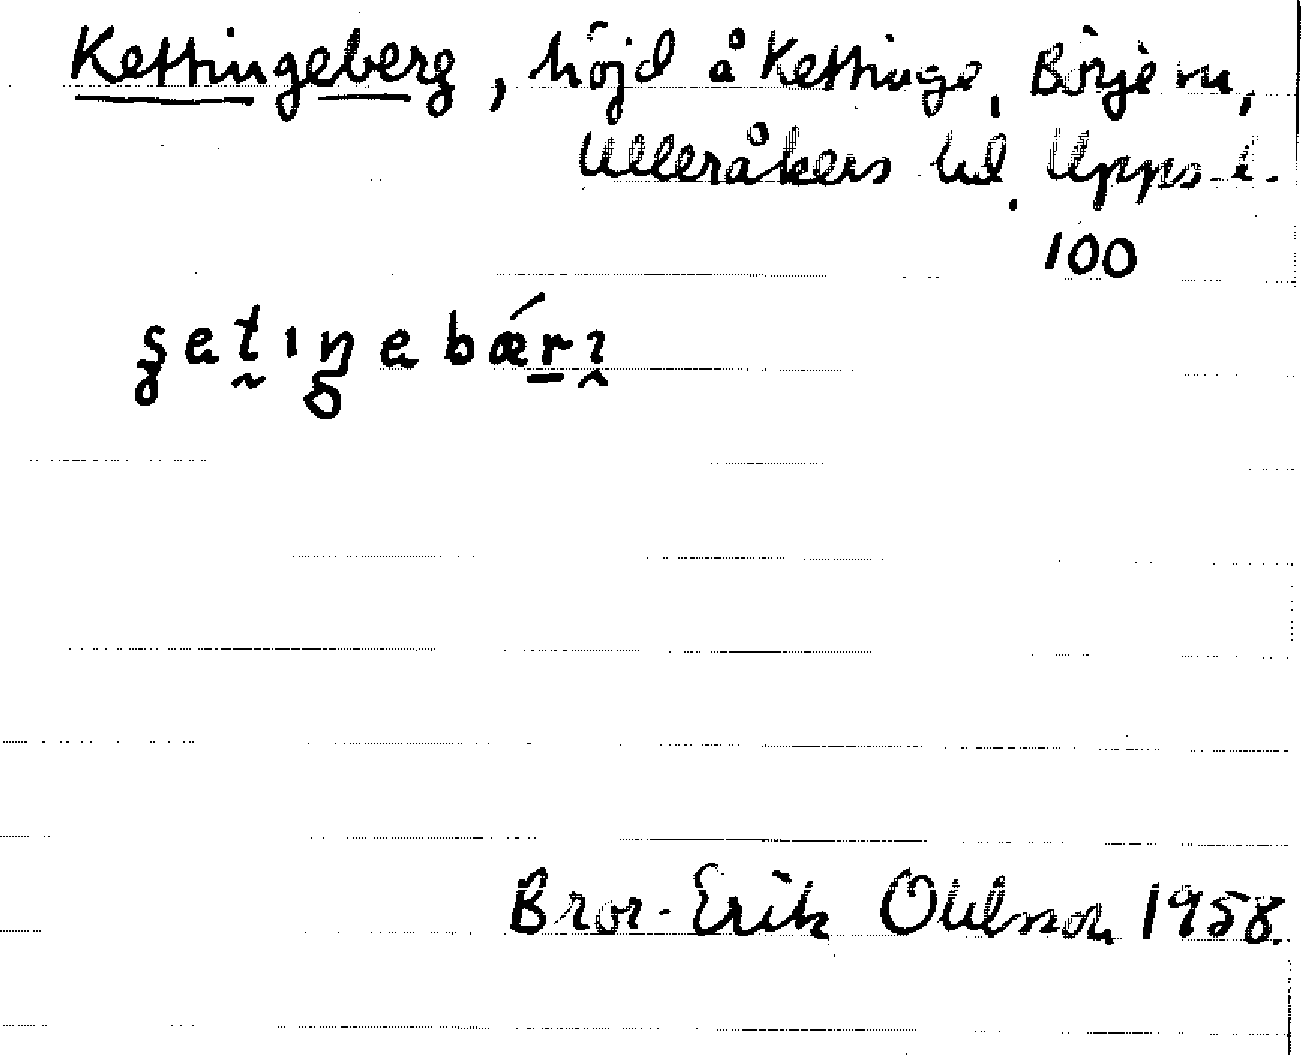 Kettingeberg, höjd å Kettinge, Börje sn,
Ulleråkers hd. Upps. l.
100
Bror-Erik Ohlsson 1958.